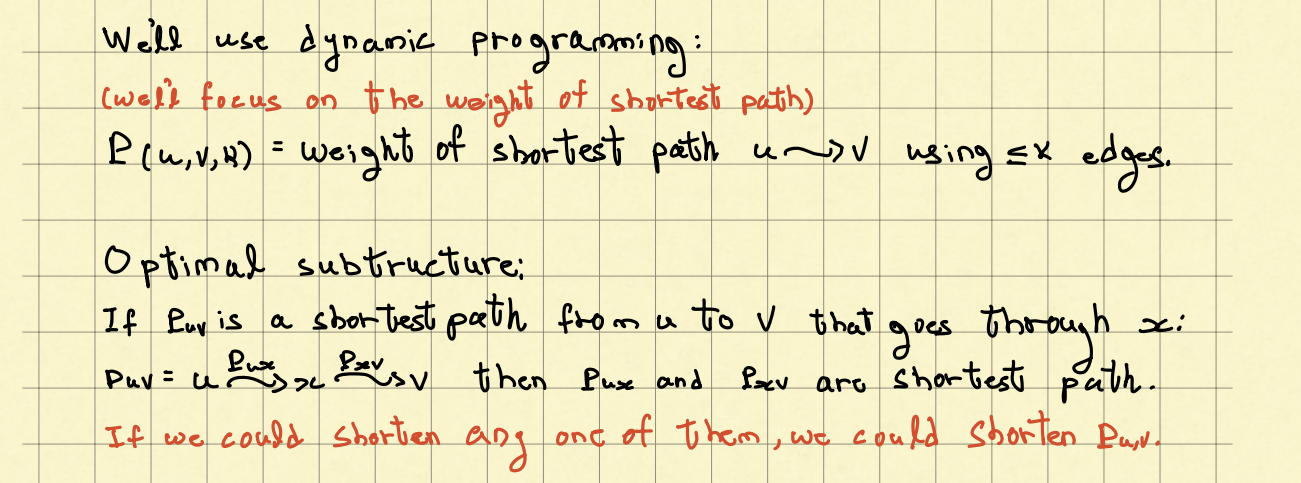 We'll use dynamic programming:
(we'll focus on the weight of shortest path)
P(u,v,k) = weight of shortest path u ⇝ v using ≤ k edges.
Optimal subtructure:
If Puv is a shortest path from u to v that goes through x:
Puv = u ⇝(Pux) x ⇝(Pxv) v then Pux and Pxv are shortest path.
If we could shorten any one of them, we could shorten Pu,v.